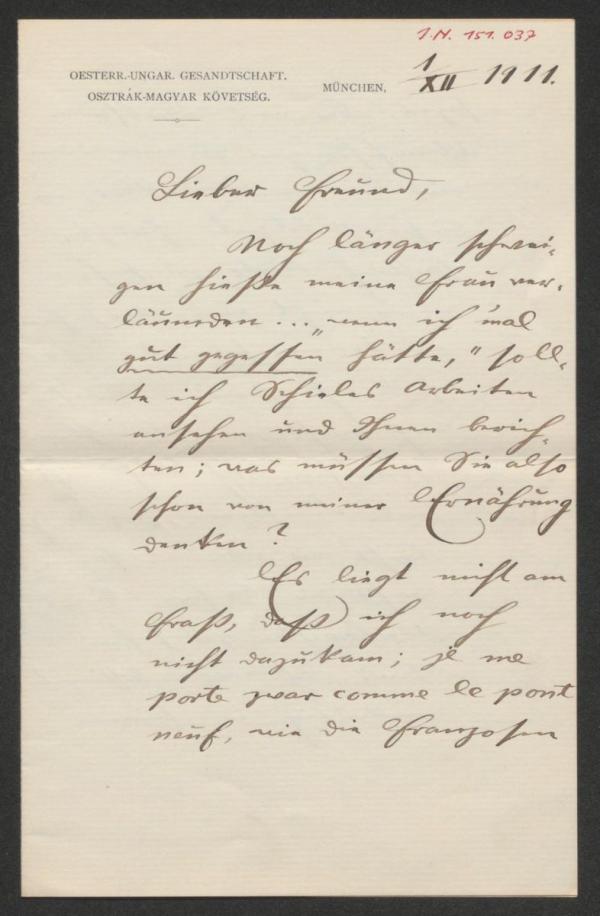 I.N. 151.037
OESTERR.-UNGAR. GESANDTSCHAFT.
OSZTRÁK-MAGYAR KÖVETSÉG.
MÜNCHEN, 1/XII 1911.
Lieber Freund,
Noch länger schwei-
gen hieße meine Frau ver-
läumden ... „wenn ich 'mal
gut gegessen hätte," soll-
te ich Schieles Arbeiten
ansehen und Ihnen berich-
ten; was müssen Sie also
schon von meiner Ernährung
denken?
Es liegt nicht am
Fraß, daß ich noch
nicht dazukam; je me
porte zwar comme le pont
neuf, wie die Franzosen